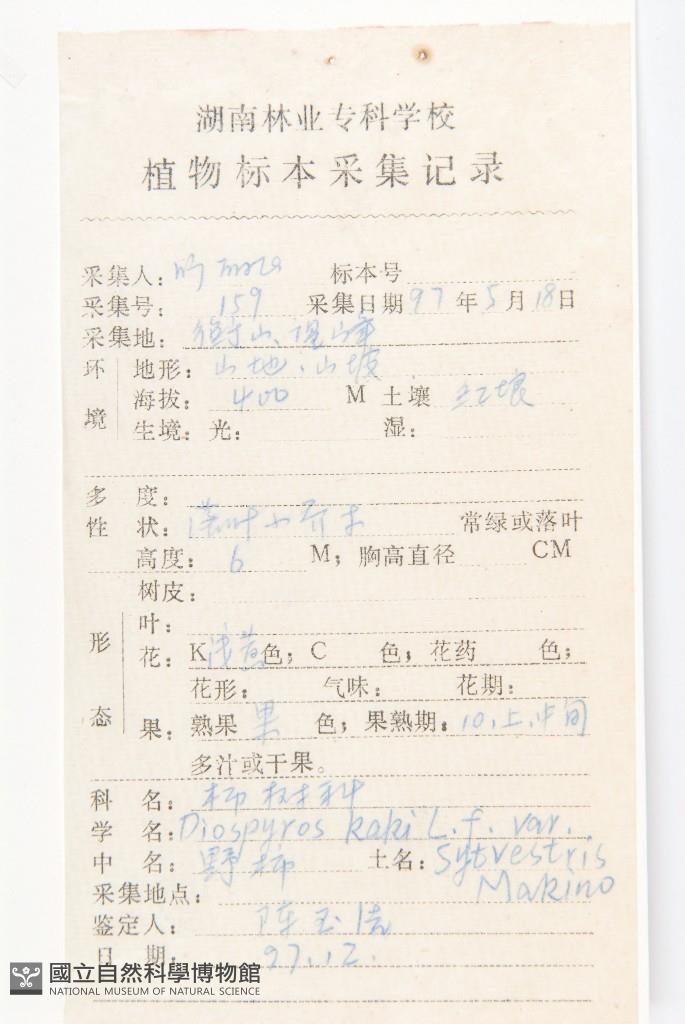 湖南林业专科学校
植物标本采集记录
采集人: 标本号
采集号: 159 采集日期 97 年 5 月 18 日
采集地: 衡山、峰
环境 地形: 山地、山坡
海拔: 400 M 土壤 红壤
生境: 光: 湿:
多 度:
性 状: 落叶小乔木 常绿或落叶
高度: 6 M; 胸高直径 CM
形态 树皮:
叶:
花: K 浅黄 色; C 色; 花药 色;
花形: 气味: 花期:
果: 熟果 色; 果熟期: 10.上.中旬
多汁或干果。
科 名: 柿树科
学 名: Diospyros kaki L.f. var.
中 名: 野柿 土名: Sytvestris
Makino
采集地点:
鉴定人: 陈玉
日 期: 97.12.
國立自然科學博物館
NATIONAL MUSEUM OF NATURAL SCIENCE